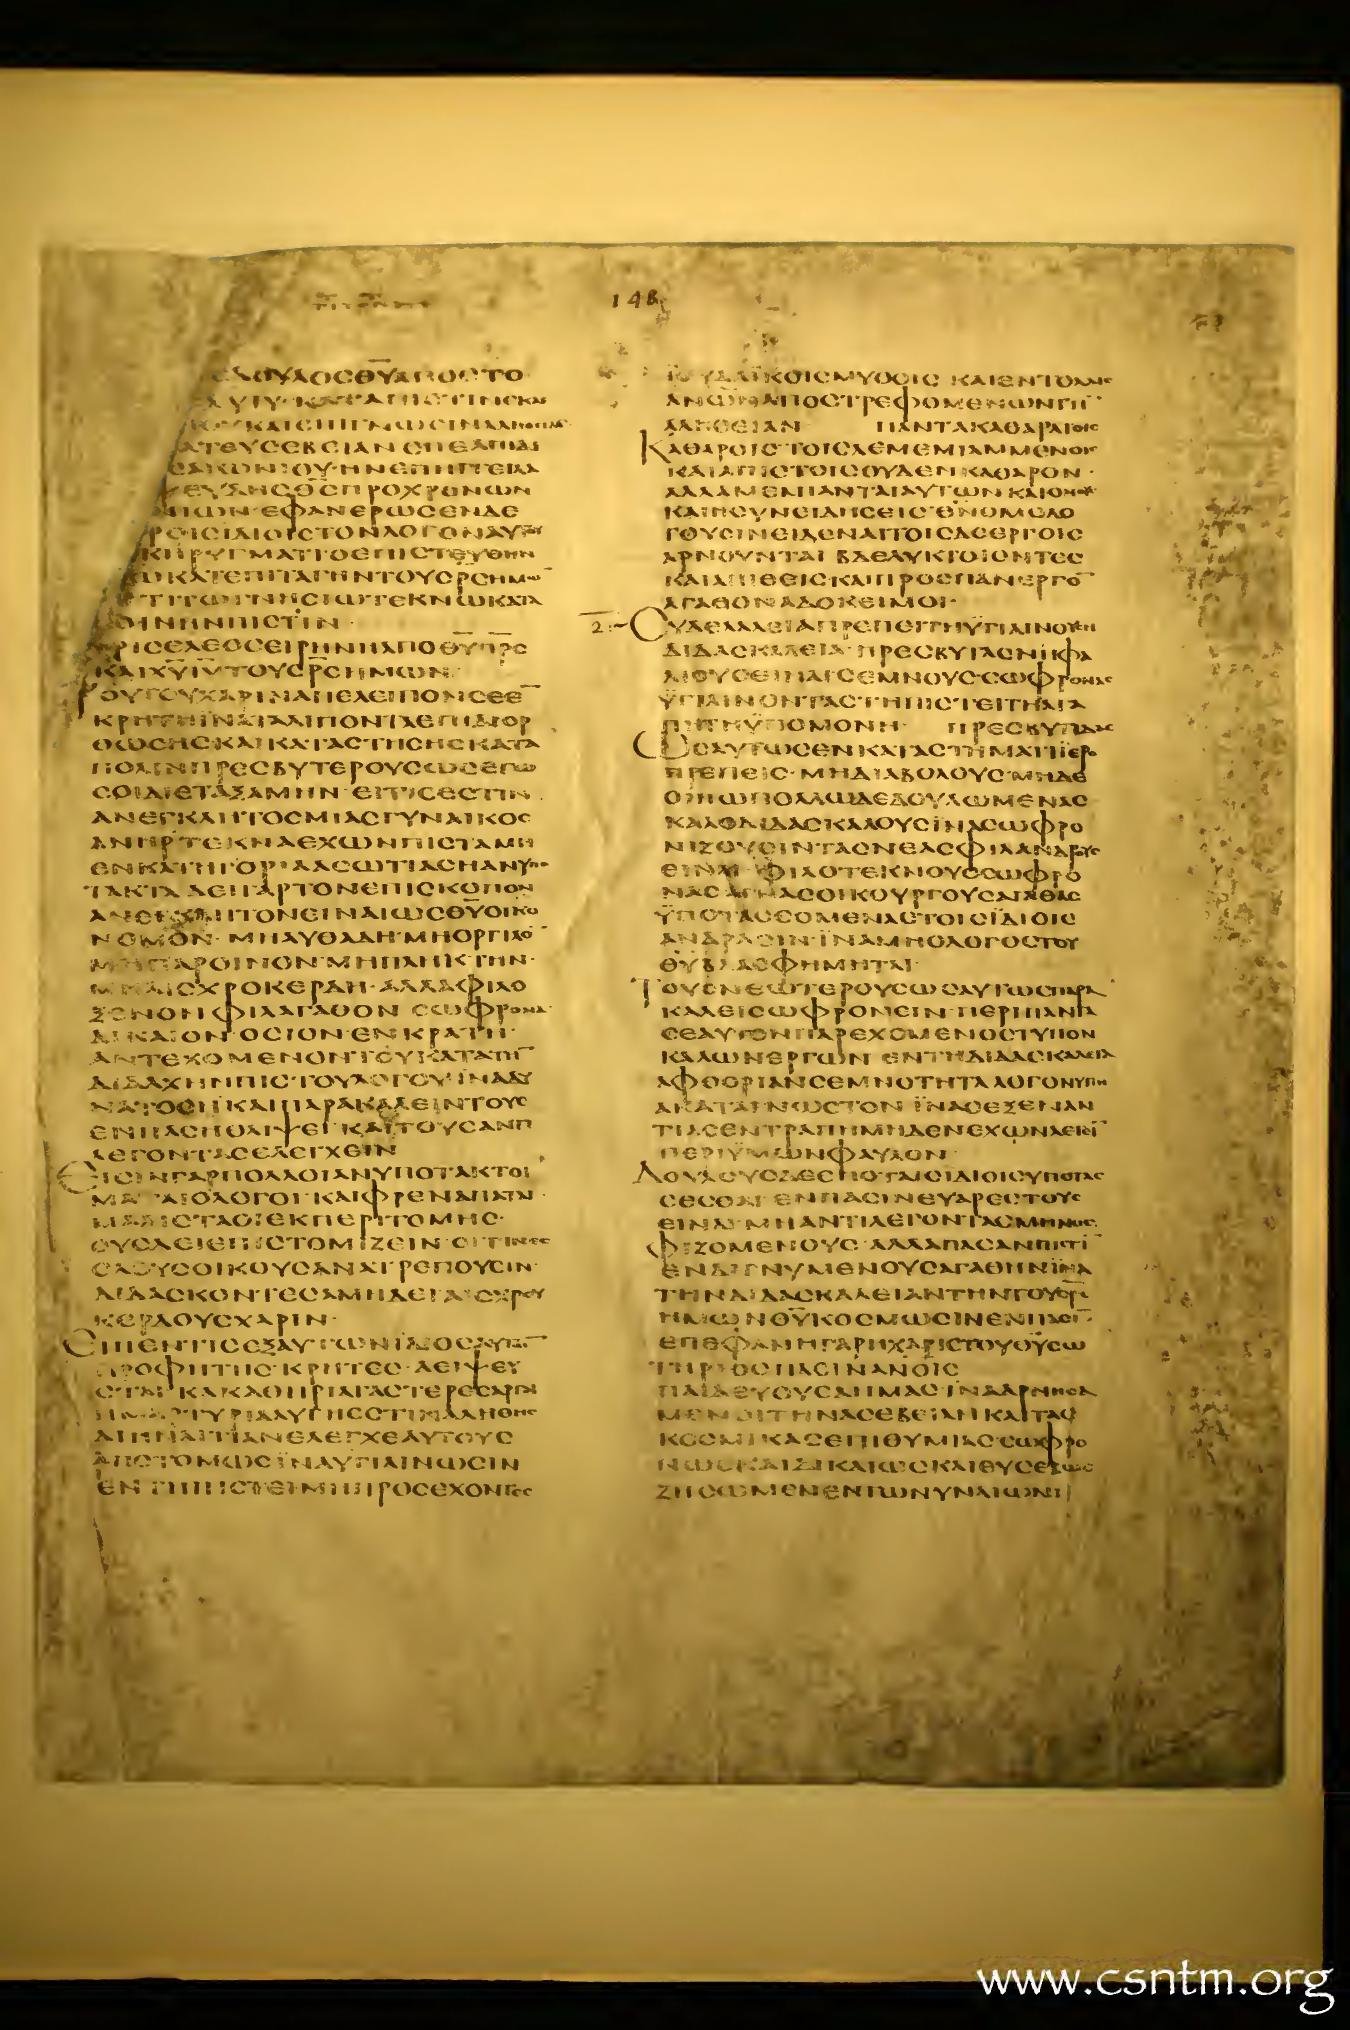 148
ΔΟΥΛΟΣΘΥΑΠΟΣΤΟ
ΧΥΙΥ·ΚΑΤΑΠΙΣΤΙΝΕΚΛ
ΚΑΙΕΠΙΓΝΩΣΙΝΑΛΗΘΕΙΑΣ
ΑΤΕΥΣΕΒΕΙΑΝΕΠΕΛΠΙΔΙ
ΑΙΩΝΙΟΥ·ΗΝΕΠΗΓΓΕΙΛΑ
ΨΕΥΔΗΣΘΣΠΡΟΧΡΟΝΩΝ
ΝΙΩΝ·ΕΦΑΝΕΡΩΣΕΝΔΕ
ΡΟΙΣΙΔΙΟΙΣΤΟΝΛΟΓΟΝΑΥΤΟΥ
ΚΗΡΥΓΜΑΤΙΟΕΠΙΣΤΕΥΘΗΝ
ΚΑΤΕΠΙΤΑΓΗΝΤΟΥΣΡΣΗΜΩ
ΤΙΤΩΓΝΗΣΙΩΤΕΚΝΩΚΑΤΑ
ΟΙΝΗΝΠΙΣΤΙΝ·
ΡΙΣΕΛΕΟΣΕΙΡΗΝΗΑΠΟΘΥΠΡΣ
ΚΑΙΧΥΙΥΤΟΥΣΡΣΗΜΩΝ·
ΤΟΥΤΟΥΧΑΡΙΝΑΠΕΛΕΙΠΟΝΣΕΕ
ΚΡΗΤΗΙΝΑΤΑΛΙΠΟΝΤΑΕΠΙΔΙΟΡ
ΘΩΣΗΣΚΑΙΚΑΤΑΣΤΗΣΗΣΚΑΤΑ
ΠΟΛΙΝΠΡΕΣΒΥΤΕΡΟΥΣΩΣΕΓΩ
ΣΟΙΔΙΕΤΑΞΑΜΗΝ·ΕΙΤΙΣΕΣΤΙΝ
ΑΝΕΓΚΛΗΤΟΣΜΙΑΣΓΥΝΑΙΚΟΣ
ΑΝΗΡΤΕΚΝΑΕΧΩΝΠΙΣΤΑΜΗ
ΕΝΚΑΤΗΓΟΡΙΑΑΣΩΤΙΑΣΗΑΝΥΠΟ
ΤΑΚΤΑ ΔΕΙΓΑΡΤΟΝΕΠΙΣΚΟΠΟΝ
ΑΝΕΓΚΛΗΤΟΝΕΙΝΑΙΩΣΘΥΟΙΚΟ
ΝΟΜΟΝ·ΜΗΑΥΘΑΔΗ·ΜΗΟΡΓΙΛΟ
ΜΗΠΑΡΟΙΝΟΝ·ΜΗΠΛΗΚΤΗΝ·
ΜΗΑΙΣΧΡΟΚΕΡΔΗ·ΑΛΛΑΦΙΛΟ
ΞΕΝΟΝΦΙΛΑΓΑΘΟΝ ΣΩΦΡΟΝΑ
ΔΙΚΑΙΟΝ·ΟΣΙΟΝ·ΕΝΚΡΑΤΗ·
ΑΝΤΕΧΟΜΕΝΟΝΤΟΥΚΑΤΑΤΗ
ΔΙΔΑΧΗΝΠΙΣΤΟΥΛΟΓΟΥ·ΙΝΑΔΥ
ΝΑΤΟΣΗΚΑΙΠΑΡΑΚΑΛΕΙΝΤΟΥΣ
ΕΝΠΑΣΗΘΛΙΨΕΙ ΚΑΙΤΟΥΣΑΝΤΙ
ΛΕΓΟΝΤΑΣΕΛΕΓΧΕΙΝ
ΕΙΣΙΝΓΑΡΠΟΛΛΟΙΑΝΥΠΟΤΑΚΤΟΙ
ΜΑΤΑΙΟΛΟΓΟΙ·ΚΑΙΦΡΕΝΑΠΑΤΑΙ·
ΜΑΛΙΣΤΑΟΙΕΚΠΕΡΙΤΟΜΗΣ·
ΟΥΣΔΕΙΕΠΙΣΤΟΜΙΖΕΙΝ·ΟΙΤΙΝΕΣ
ΟΛΟΥΣΟΙΚΟΥΣΑΝΑΤΡΕΠΟΥΣΙΝ·
ΔΙΔΑΣΚΟΝΤΕΣΑΜΗΔΕΙΑΙΣΧΡΟΥ
ΚΕΡΔΟΥΣΧΑΡΙΝ·
ΕΙΠΕΝΤΙΣΕΞΑΥΤΩΝΙΔΙΟΣΑΥΤΩ
ΠΡΟΦΗΤΗΣ·ΚΡΗΤΕΣ·ΑΕΙΨΕΥ
ΣΤΑΙ ΚΑΚΑΘΗΡΙΑΓΑΣΤΕΡΕΣΑΡΓΑΙ
ΗΜΑΡΤΥΡΙΑΑΥΤΗΕΣΤΙΝΑΛΗΘΗΣ
ΔΙΗΝΑΙΤΙΑΝΕΛΕΓΧΕΑΥΤΟΥΣ
ΑΠΟΤΟΜΩΣΙΝΑΥΓΙΑΙΝΩΣΙΝ
ΕΝΤΗΠΙΣΤΕΙΜΗΠΡΟΣΕΧΟΝΤΕΣ
ΙΟΥΔΑΙΚΟΙΣΜΥΘΟΙΣ ΚΑΙΕΝΤΟΛΑΙΣ
ΑΝΩΝΑΠΟΣΤΡΕΦΟΜΕΝΩΝΤΗ
ΑΛΗΘΕΙΑΝ ΠΑΝΤΑΚΑΘΑΡΑΤΟΙΣ
ΚΑΘΑΡΟΙΣ·ΤΟΙΣΔΕΜΕΜΙΑΜΜΕΝΟΙΣ
ΚΑΙΑΠΙΣΤΟΙΣΟΥΔΕΝΚΑΘΑΡΟΝ·
ΑΛΛΑΜΕΜΙΑΝΤΑΙΑΥΤΩΝΚΑΙΟΝΟΥΣ
ΚΑΙΗΣΥΝΕΙΔΗΣΕΙΣ·ΘΝΟΜΟΛΟ
ΓΟΥΣΙΝΕΙΔΕΝΑΙΤΟΙΣΔΕΕΡΓΟΙΣ
ΑΡΝΟΥΝΤΑΙ ΒΔΕΛΥΚΤΟΙΟΝΤΕΣ
ΚΑΙΑΠΙΘΕΙΣΚΑΙΠΡΟΣΠΑΝΕΡΓΟ
ΑΓΑΘΟΝΑΔΟΚΕΙΜΟΙ·
2 ΣΥΔΕΛΑΛΕΙΑΠΡΕΠΕΙΤΗΥΓΙΑΙΝΟΥΣΗ
ΔΙΔΑΣΚΑΛΕΙΑ·ΠΡΕΣΒΥΤΑΣΝΗΦΑ
ΛΙΟΥΣΕΙΝΑΙ·ΣΕΜΝΟΥΣ·ΣΩΦΡΟΝΑΣ
ΥΓΙΑΙΝΟΝΤΑΣΤΗΠΙΣΤΕΙΤΗΑΓΑ
ΠΗΤΗΥΠΟΜΟΝΗ· ΠΡΕΣΒΥΤΙΔΑΣ
ΩΣΑΥΤΩΣΕΝΚΑΤΑΣΤΗΜΑΤΙΙΕΡΟ
ΠΡΕΠΕΙΣ·ΜΗΔΙΑΒΟΛΟΥΣ·ΜΗΔΕ
ΟΙΝΩΠΟΛΛΩΔΕΔΟΥΛΩΜΕΝΑΣ
ΚΑΛΟΔΙΔΑΣΚΑΛΟΥΣΙΝΑΣΩΦΡΟ
ΝΙΖΟΥΣΙΝΤΑΣΝΕΑΣΦΙΛΑΝΔΡΟΥΣ
ΕΙΝΑΙ ΦΙΛΟΤΕΚΝΟΥΣΣΩΦΡΟ
ΝΑΣ ΑΓΝΑΣΟΙΚΟΥΡΓΟΥΣΑΓΑΘΑΣ
ΥΠΟΤΑΣΣΟΜΕΝΑΣΤΟΙΣΙΔΙΟΙΣ
ΑΝΔΡΑΣΙΝ·ΙΝΑΜΗΟΛΟΓΟΣΤΟΥ
ΘΥΒΛΑΣΦΗΜΗΤΑΙ·
ΤΟΥΣΝΕΩΤΕΡΟΥΣΩΣΑΥΤΩΣΠΑΡΑ
ΚΑΛΕΙΣΩΦΡΟΝΕΙΝ·ΠΕΡΙΠΑΝΤΑ
ΣΕΑΥΤΟΝΠΑΡΕΧΟΜΕΝΟΣΤΥΠΟΝ
ΚΑΛΩΝΕΡΓΩΝ ΕΝΤΗΔΙΔΑΣΚΑΛΕΙΑ
ΑΦΘΟΡΙΑΝΣΕΜΝΟΤΗΤΑΛΟΓΟΝΥΓΙΗ
ΑΚΑΤΑΓΝΩΣΤΟΝ ΙΝΑΟΕΞΕΝΑΝ
ΤΙΑΣΕΝΤΡΑΠΗΜΗΔΕΝΕΧΩΝΛΕΓΕΙ
ΠΕΡΙΥΜΩΝΦΑΥΛΟΝ·
ΔΟΥΛΟΥΣΔΕΣΠΟΤΑΙΣΙΔΙΟΙΣΥΠΟΤΑΣ
ΣΕΣΘΑΙ ΕΝΠΑΣΙΝΕΥΑΡΕΣΤΟΥΣ
ΕΙΝΑΙ·ΜΗΑΝΤΙΛΕΓΟΝΤΑΣΜΗΝΟΣ
ΦΙΖΟΜΕΝΟΥΣ·ΑΛΛΑΠΑΣΑΝΠΙΣΤΙ
ΕΝΔΙΓΝΥΜΕΝΟΥΣΑΓΑΘΗΝΙΝΑ
ΤΗΝΔΙΔΑΣΚΑΛΕΙΑΝΤΗΝΤΟΥΣΡΣ
ΗΜΩΝΘΥΚΟΣΜΩΣΙΝΕΝΠΑΣΙ·
ΕΠΕΦΑΝΗΓΑΡΗΧΑΡΙΣΤΟΥΘΥΣΩ
ΤΗΡΙΟΣΠΑΣΙΝΑΝΟΙΣ
ΠΑΙΔΕΥΟΥΣΑΗΜΑΣΙΝΑΑΡΝΗΣΑ
ΜΕΝΟΙΤΗΝΑΣΕΒΕΙΑΝΚΑΙΤΑΣ
ΚΟΣΜΙΚΑΣΕΠΙΘΥΜΙΑΣ·ΣΩΦΡΟ
ΝΩΣΚΑΙΔΙΚΑΙΩΣΚΑΙΕΥΣΕΒΩΣ
ΖΗΣΩΜΕΝΕΝΤΩΝΥΝΑΙΩΝΙ
www.csntm.org